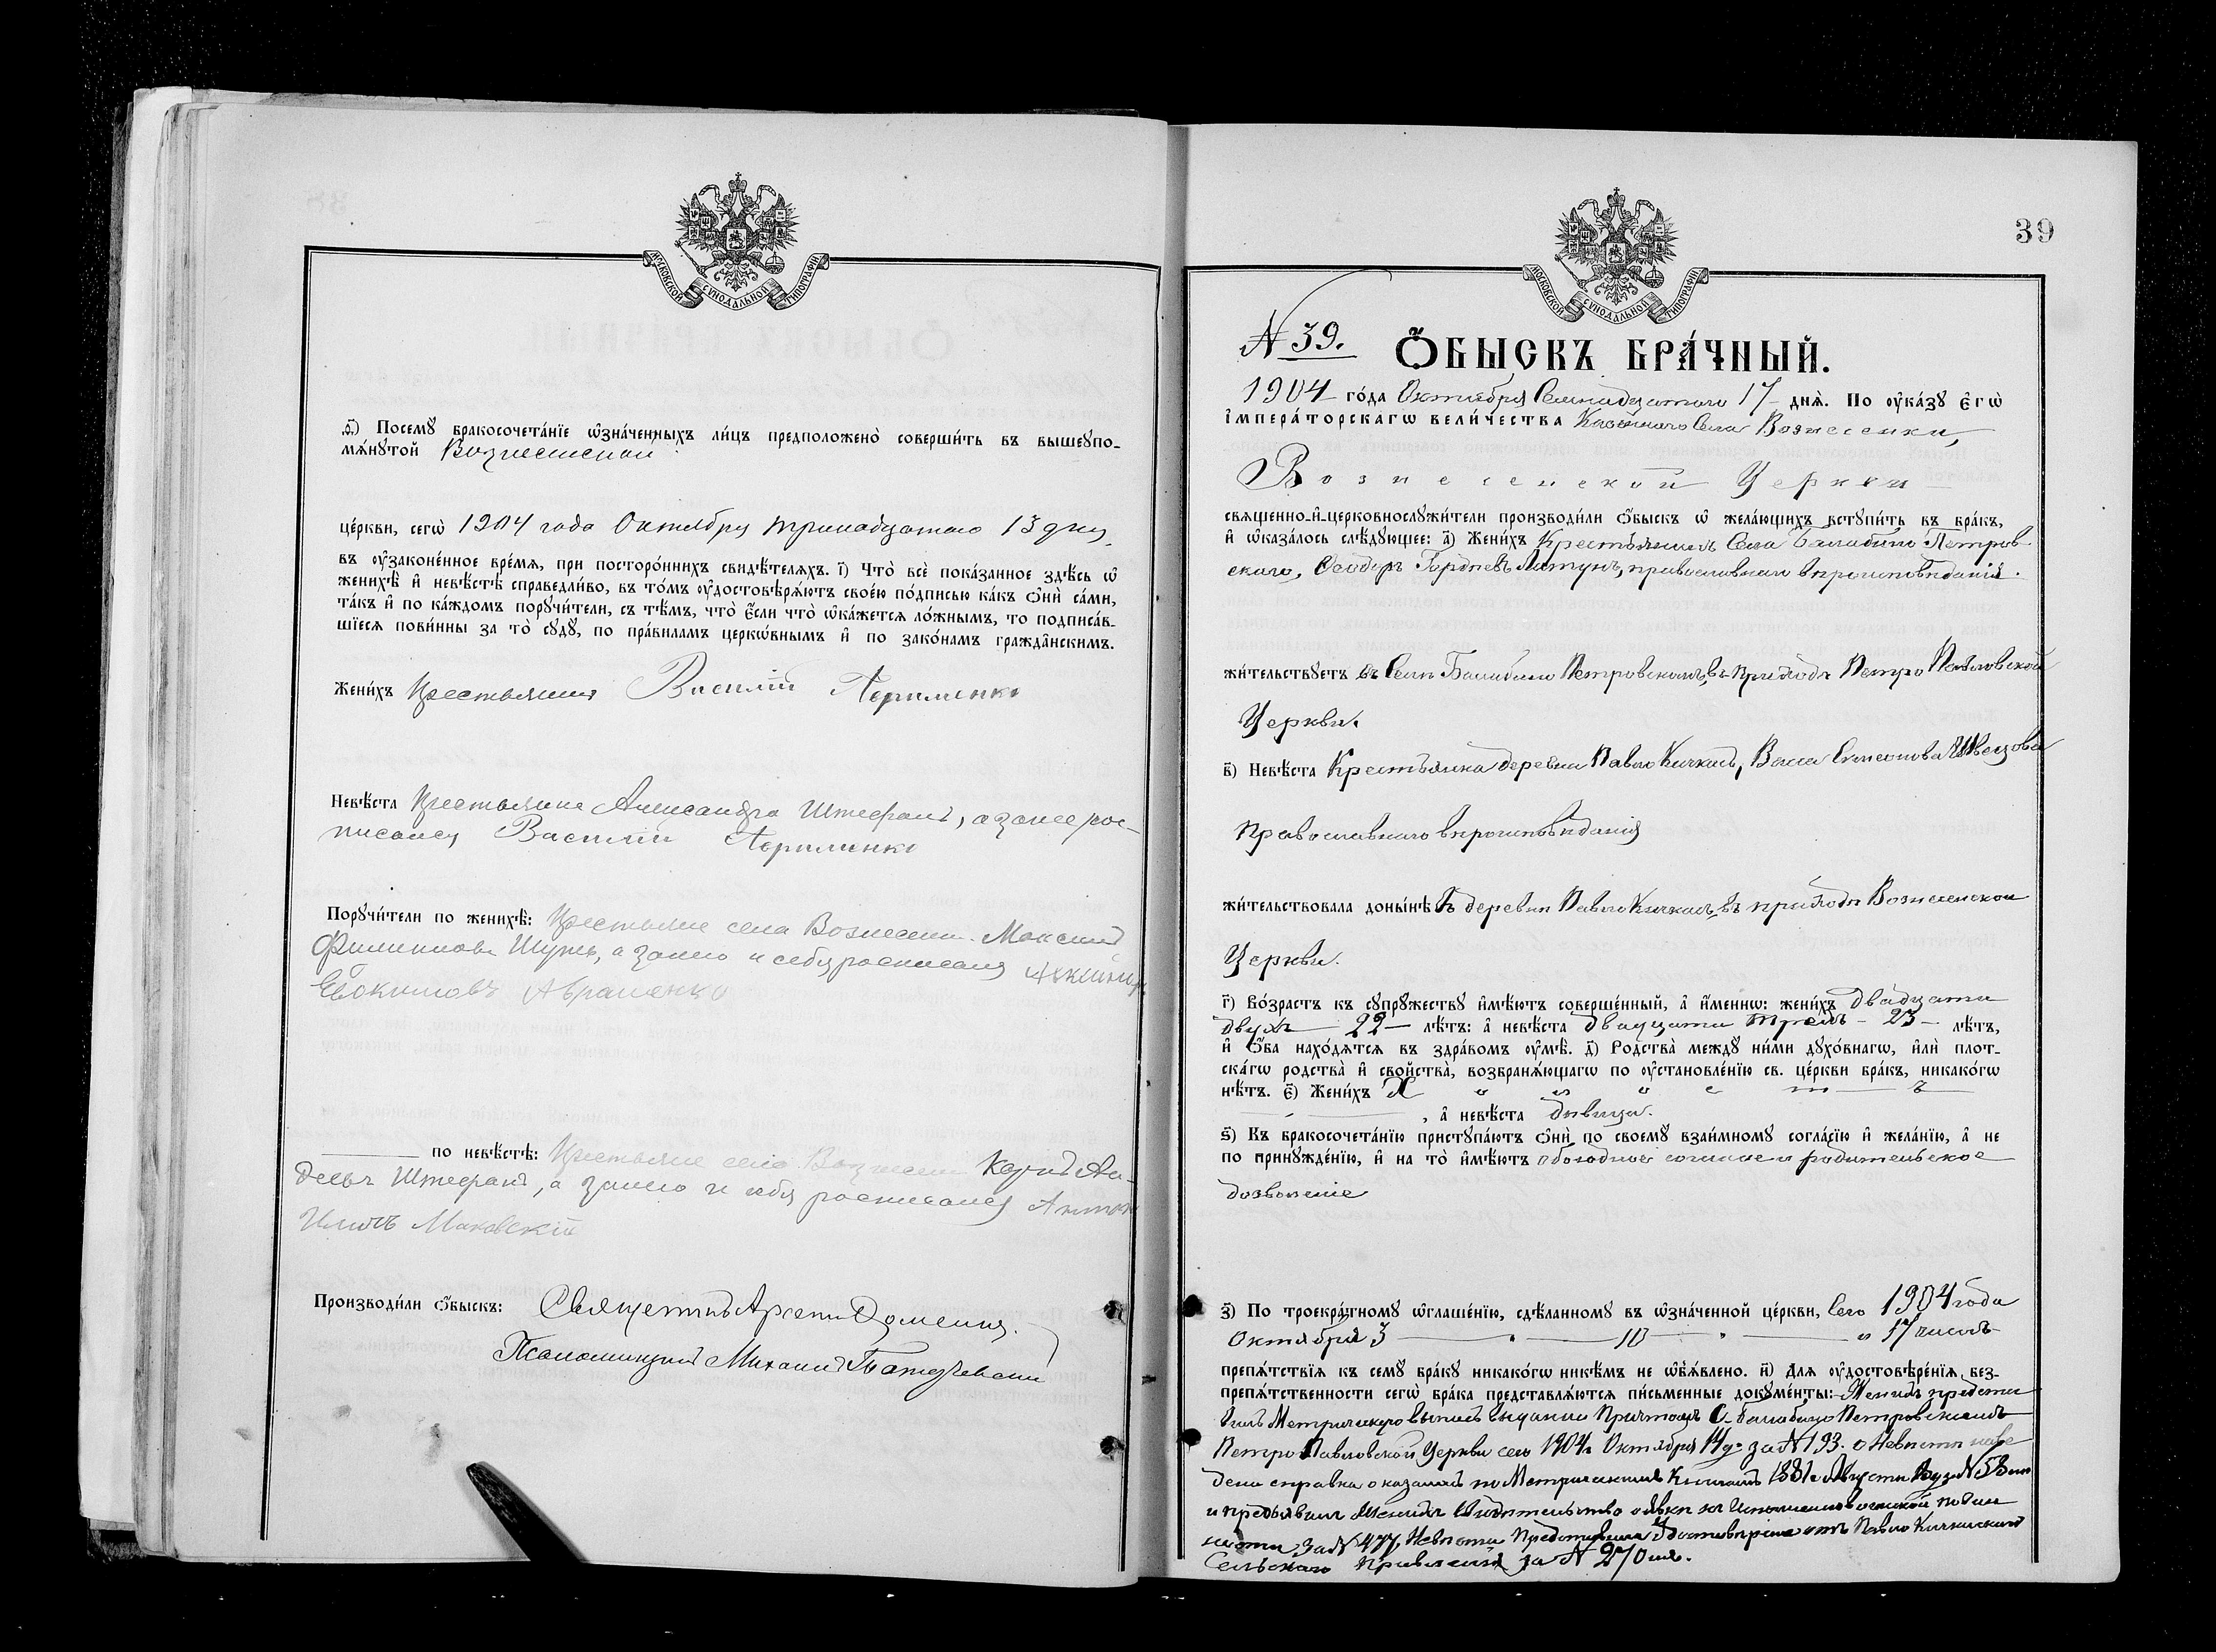 МОСКОВСКОЙ СѴНОДАЛЬНОЙ ТИПОГРАФІИ
ѳ҃) Посемꙋ̀ бракосочета́нїе ѡ҆зна́ченныхъ ли́цъ предположено̀ соверши́ть въ вышеꙋпо-
мѧ́нꙋтой Вознесенской
це́ркви, сегѡ̀ 1904 года Октября тринадцатаго 13 дня
въ ᲂу҆зако́ненное вре́мѧ, при посторо́ннихъ свидѣ́телѧхъ. і҃) Что̀ всѐ пока́занное здѣ́сь ѡ҆
женихѣ̀ и҆ невѣ́стѣ справедли́во, въ то́мъ ᲂу҆достовѣрѧ́ютъ свое́ю по́дписью ка́къ ѻ҆нѝ са́ми,
та́къ и҆ по ка́ждомъ порꙋчи́тели, съ тѣ́мъ, что̀ є҆́сли что̀ ѡ҆ка́жетсѧ ло́жнымъ, то подписа́в-
шїесѧ пови́нны за то̀ сꙋдꙋ̀, по пра́виламъ церкѡ́внымъ и҆ по зако́намъ гражда̑нскимъ.
Жени́хъ Крестьянинъ Василій
Невѣ́ста Крестьянка Александра Штефанъ, а за нее рос-
писался Василій
Порꙋчи́тели по женихѣ̀: Крестьяне села Вознесенки Максимъ
Филиповъ а за него и себя росписался
Евдокимовъ Авраменко
по невѣ́стѣ: Крестьяне села Вознесенки Карпъ Ав-
деевъ Штефанъ, а за него и себя росписался Антонъ
Маковскій
Производи́ли ѻ҆́быскъ: Священникъ
Псаломщикъ Михаилъ
39
МОСКОВСКОЙ СѴНОДАЛЬНОЙ ТИПОГРАФІИ
№ 39.
Ѻ҆́БЫСКЪ БРА́ЧНЫЙ.
1904 го́да Октября Семнадцатаго 17 днѧ̀. По ᲂу҆ка́зꙋ Є҆гѡ̀
І҆мпера́торскагѡ Вели́чества Казеннаго Села Вознесенки,
Вознесенской Церкви
свѧщенно-и҆-церковнослꙋжи́тели производи́ли ѻ҆́быскъ ѡ҆ жела́ющихъ встꙋпи́ть въ бра́къ,
и҆ ѡ҆каза́лось слѣ́дꙋющее: а҃) Жени́хъ Крестьянинъ Села Балабино Петров-
скаго, Феодоръ Гордѣевъ Латунъ, православнаго вѣроисповѣданія.
жи́тельствꙋетъ въ Селѣ Балабино Петровскомъ, въ приходѣ Петро Павловской
Церкви.
в҃) Невѣ́ста Крестьянка деревни Павло Кичкасъ, Васса Симеонова Швецова
Православнаго вѣроисповѣданія
жи́тельствовала доны́нѣ въ деревнѣ Павло Кичкасъ, въ приходѣ Вознесенской
Церкви.
г҃) Во́зрастъ къ сꙋпрꙋ́жествꙋ и҆мѣ́ютъ соверше́нный, а҆ и҆́меннѡ: жени́хъ двадцати
двухъ 22 лѣ́тъ: а҆ невѣ́ста двадцати трехъ - 23 - лѣ́тъ,
и҆ ѻ҆́ба нахо́дѧтсѧ въ здра́вомъ ᲂу҆мѣ̀. д҃) Родства̀ междꙋ̀ ни́ми дꙋхо́внагѡ, и҆лѝ плот-
ска́гѡ родства̀ и҆ сво́йства̀, возбранѧ́ющагѡ по ᲂу҆становле́нїю св. це́ркви бра́къ, никако́гѡ
нѣ́тъ. є҃) Жени́хъ Холостъ
, а҆ невѣ́ста дѣвица.
ѕ҃) Къ бракосочета́нїю пристꙋпа́ютъ ѻ҆нѝ по своемꙋ̀ взаи́мномꙋ согла́сїю и҆ жела́нїю, а҆ не
по принꙋжде́нїю, и҆ на то̀ и҆мѣ́ютъ обоюдное согласіе и родительское
дозволеніе
з҃) По троекра́тномꙋ ѡ҆глаше́нїю, сдѣ́ланномꙋ въ ѡ҆зна́ченной це́ркви, Сего 1904 года
Октября 3 — " — 10 — " — и 17 числъ
препѧ́тствїѧ къ семꙋ̀ бра́кꙋ никако́гѡ никѣ́мъ не ѡ҆б̾ѧ́влено. и҃) Длѧ ᲂу҆достовѣре́нїѧ без-
препѧ́тственности сегѡ̀ бра́ка представлѧ́ютсѧ пи́сьменные докꙋме́нты: Женихъ предста-
вилъ Метрическую выпись выданную Причтомъ С. Балабино Петровскимъ
Петро Павловской Церкви сего 1904 г. Октября 14 д. за № 193. о Невѣстѣ наве-
дена справка по Метрическимъ Книгамъ 1881 г. Августа № 53
и предъявилъ Женихъ Свидетельство о явкѣ къ исполненію воинской повин-
ности за № 477, Невѣста Представила Удостовѣреніе отъ Павло Кичкаскаго
Сельскаго Правленія за № 270